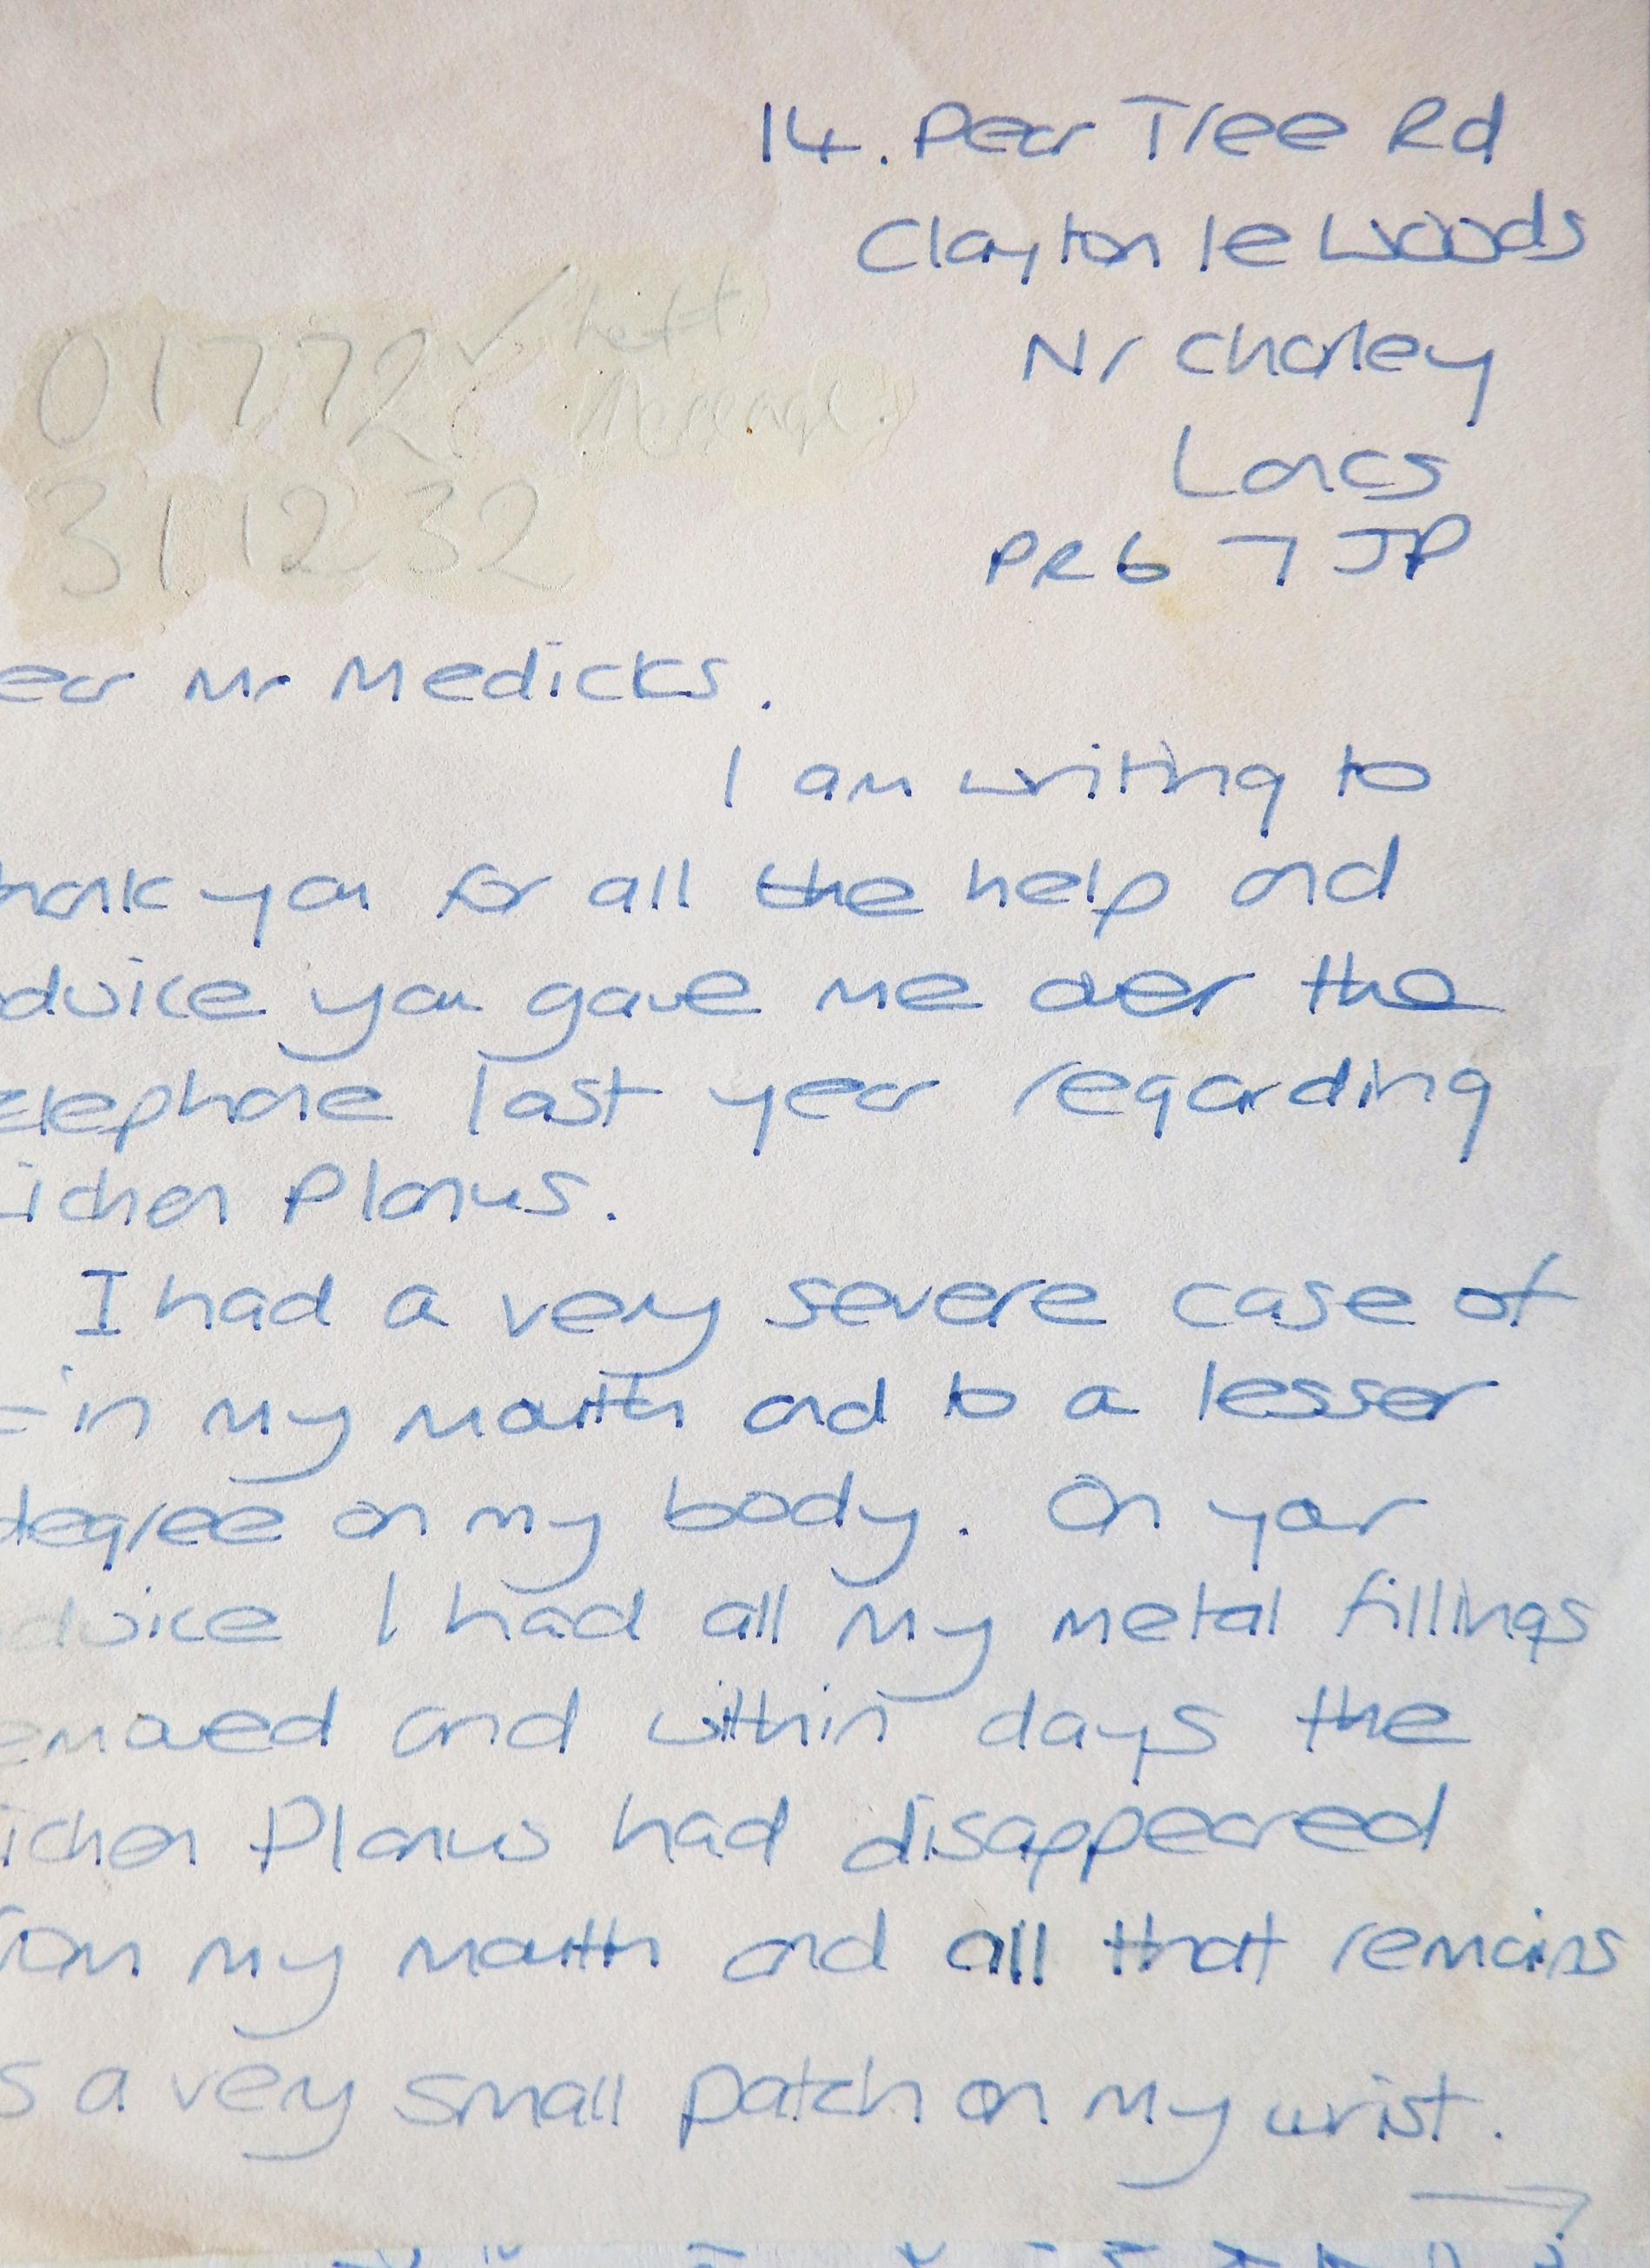 14. Pear Tree Rd
Clayton le Woods
Nr Chorley
Lancs
PR6 7JP
01772 ✓ Left
Message.
311232
ear Mr Medicks.
I am writing to
hank you for all the help and
dvice you gave me over the
elephone last year regarding
ichen Planus.
I had a very severe case of
in my mouth and to a lesser
degree on my body. On your
dvice I had all my metal fillings
emoved and within days the
ichen Planus had disappeared
from my mouth and all that remains
s a very small patch on my wrist.
→